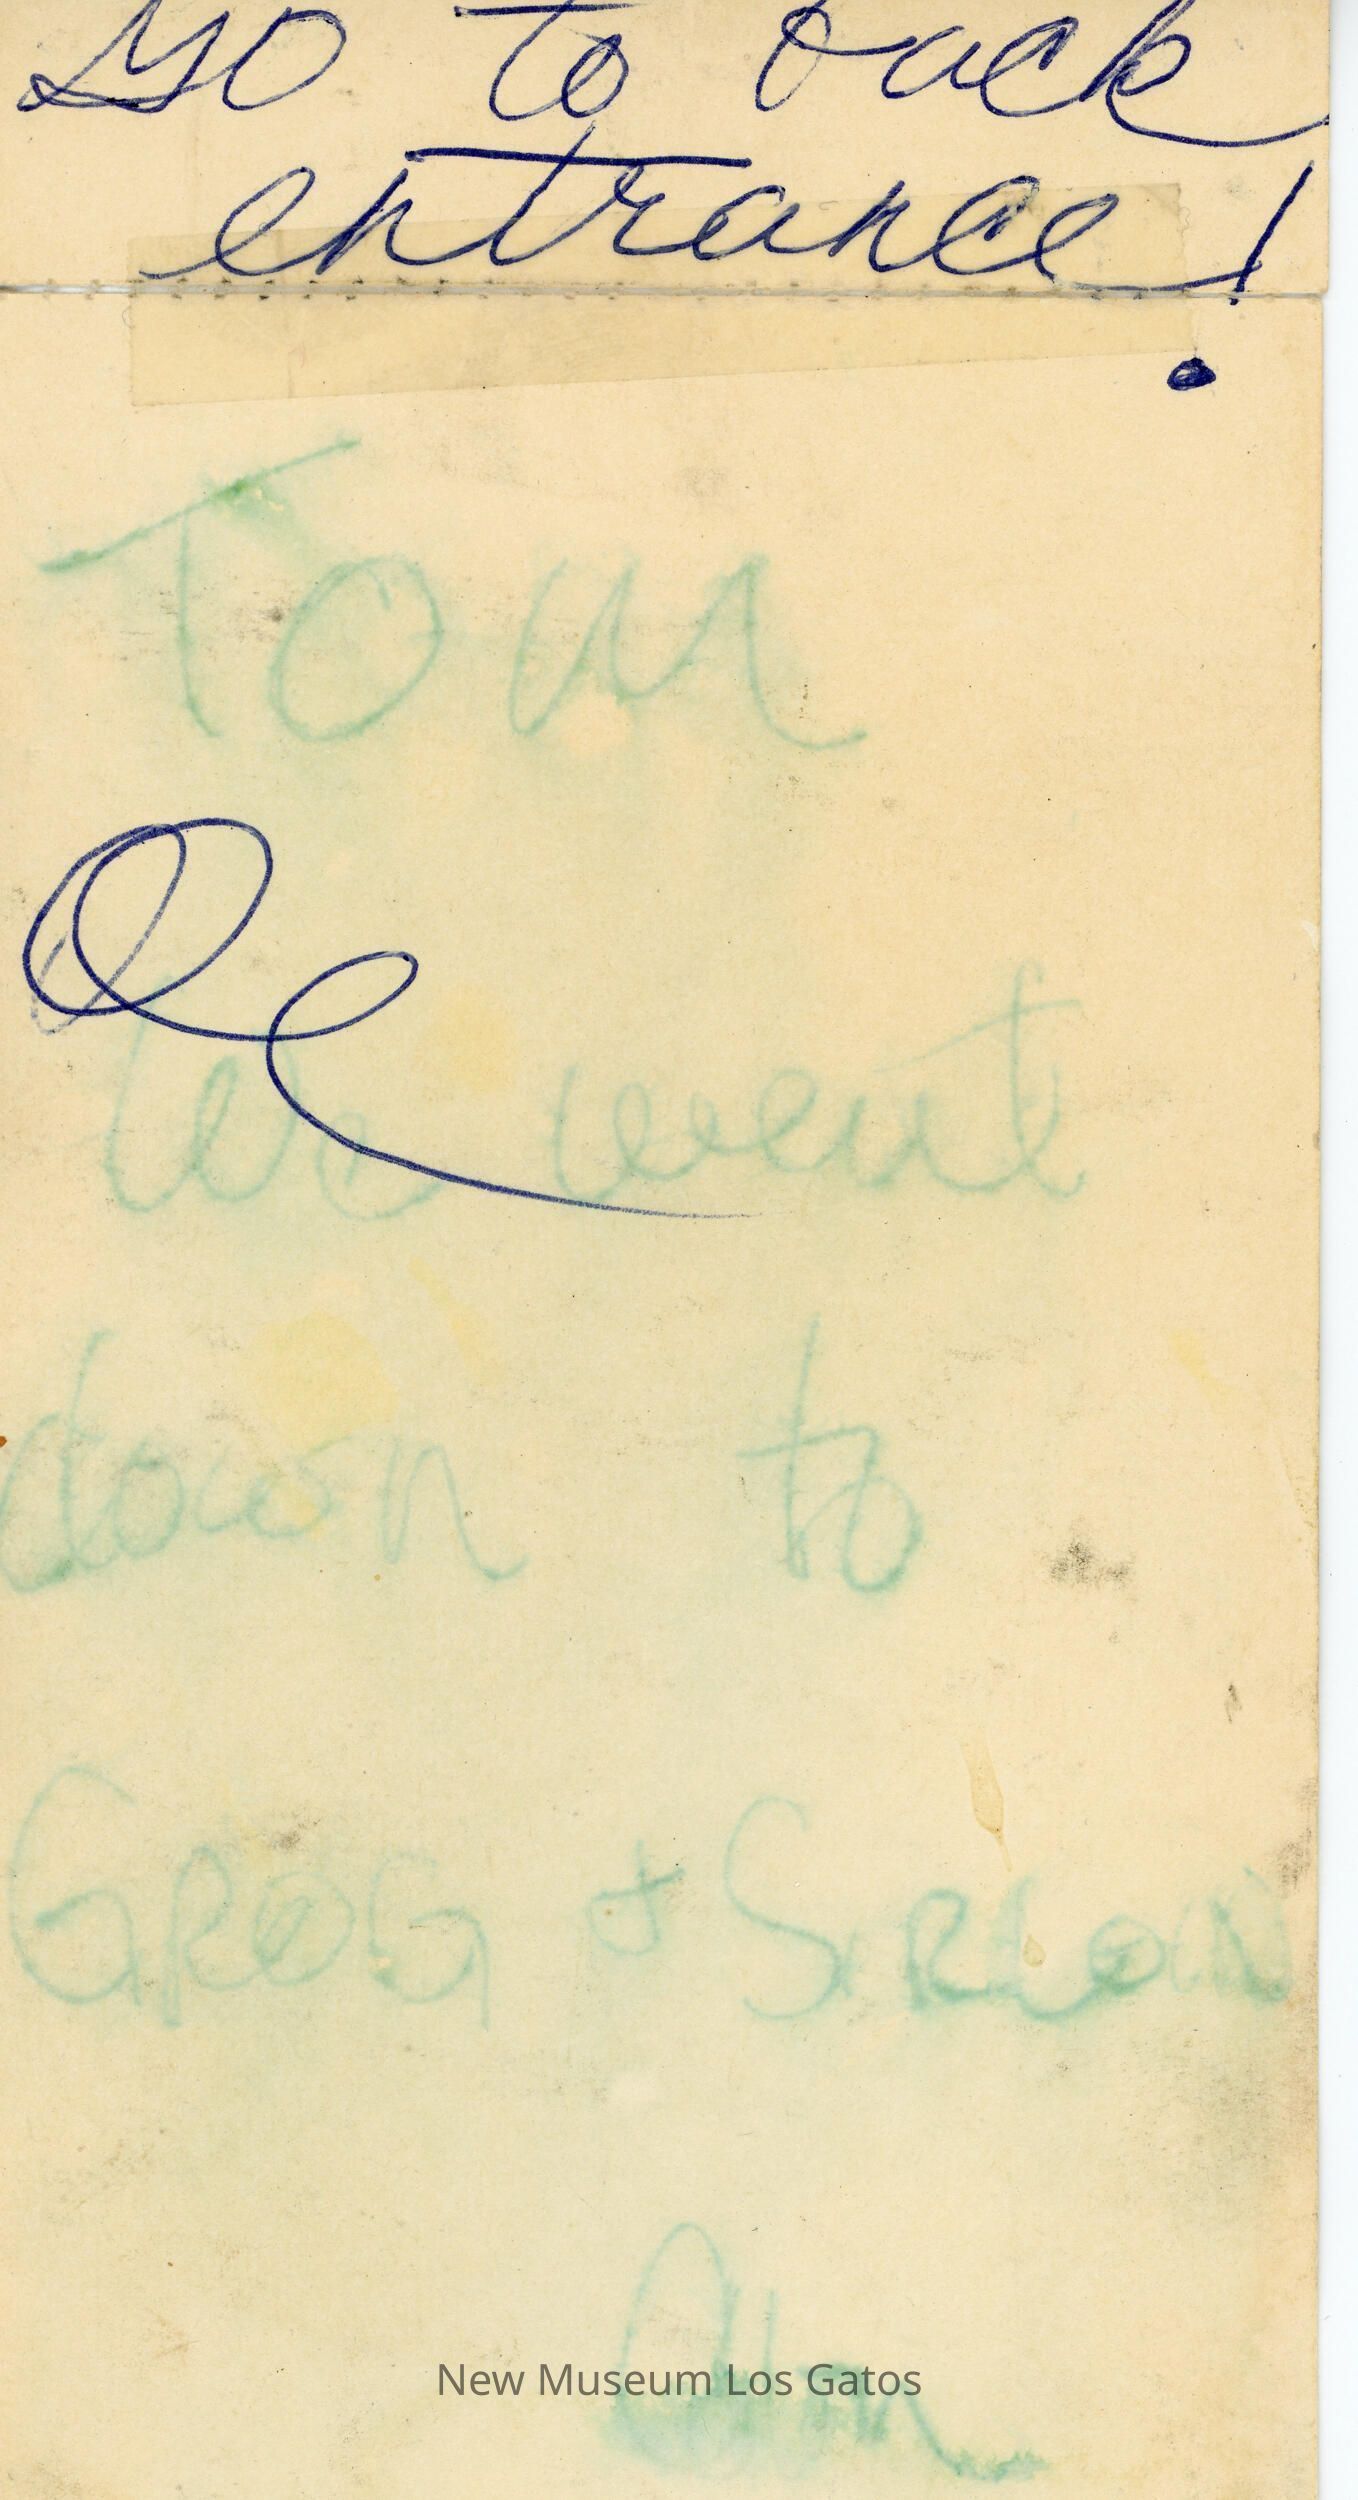 go to back
entrance!
Tom
We went
down to
GROG + SIRLOIN
New Museum Los Gatos